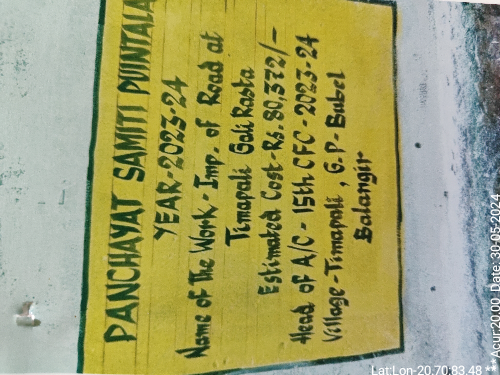 PANCHAYAT SAMITI PUINTALA
YEAR-2023-24
Name of The Work-Imp. of Road at
Timapali Gali Rasta
Estimated Cost-Rs. 80,372/-
Head of A/C - 15th CFC-2023-24
Village-Timapali, G.P-Bubel
Balangir
Lat:Lon-20.70,83.48
**Acur:20.00, Date: 30-05-2024